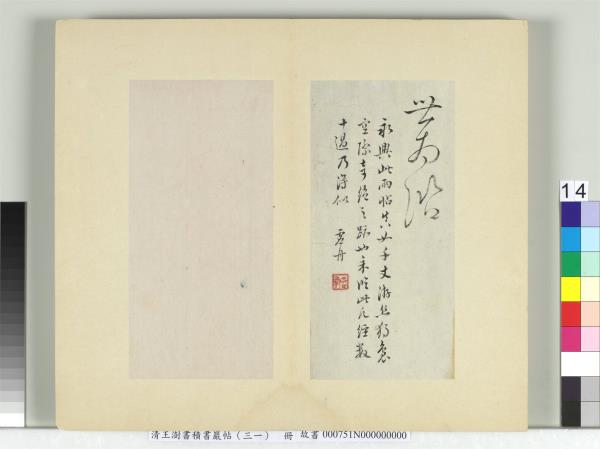 世南
永興此兩帖真如千丈游絲獨裊
空際奇絕之跡也余臨此凡經數
十過乃得似 虛舟
14
清王澍書積書巖帖(三一) 冊 故書 000751N000000000